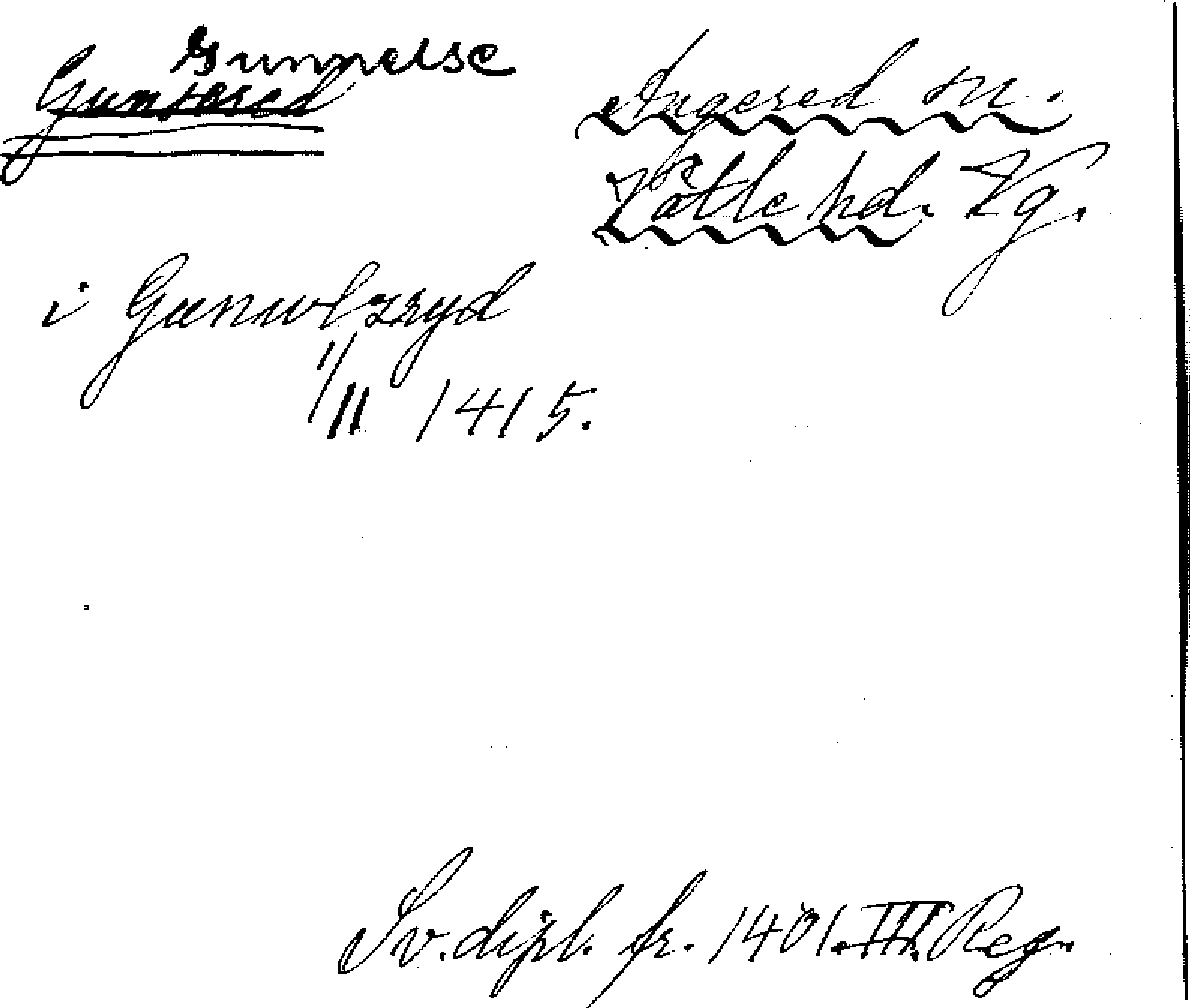 Gunnelse
Gunnered Angered sn.
Vättle hd. Vg.
i Gunwlzryd
1/11 1415.
Sv. dipl. fr. 1401. III. Reg.